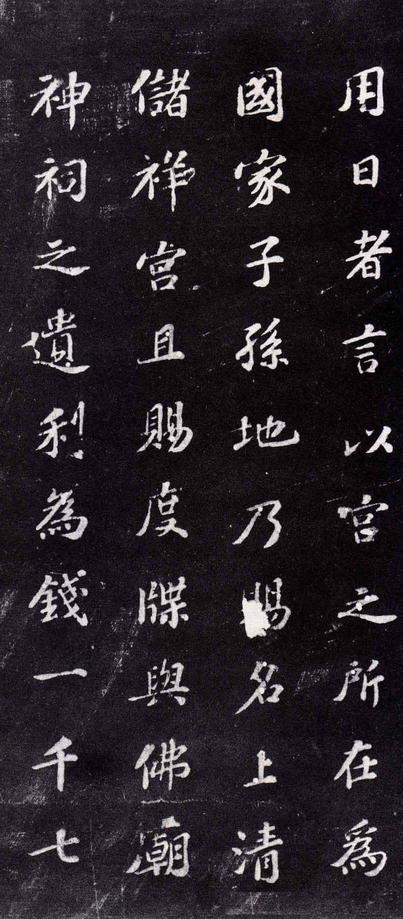 用日者言以宮之所在為
國家子孫地乃賜名上清
儲祥宮且賜度牒與佛廟
神祠之遺利為錢一千七